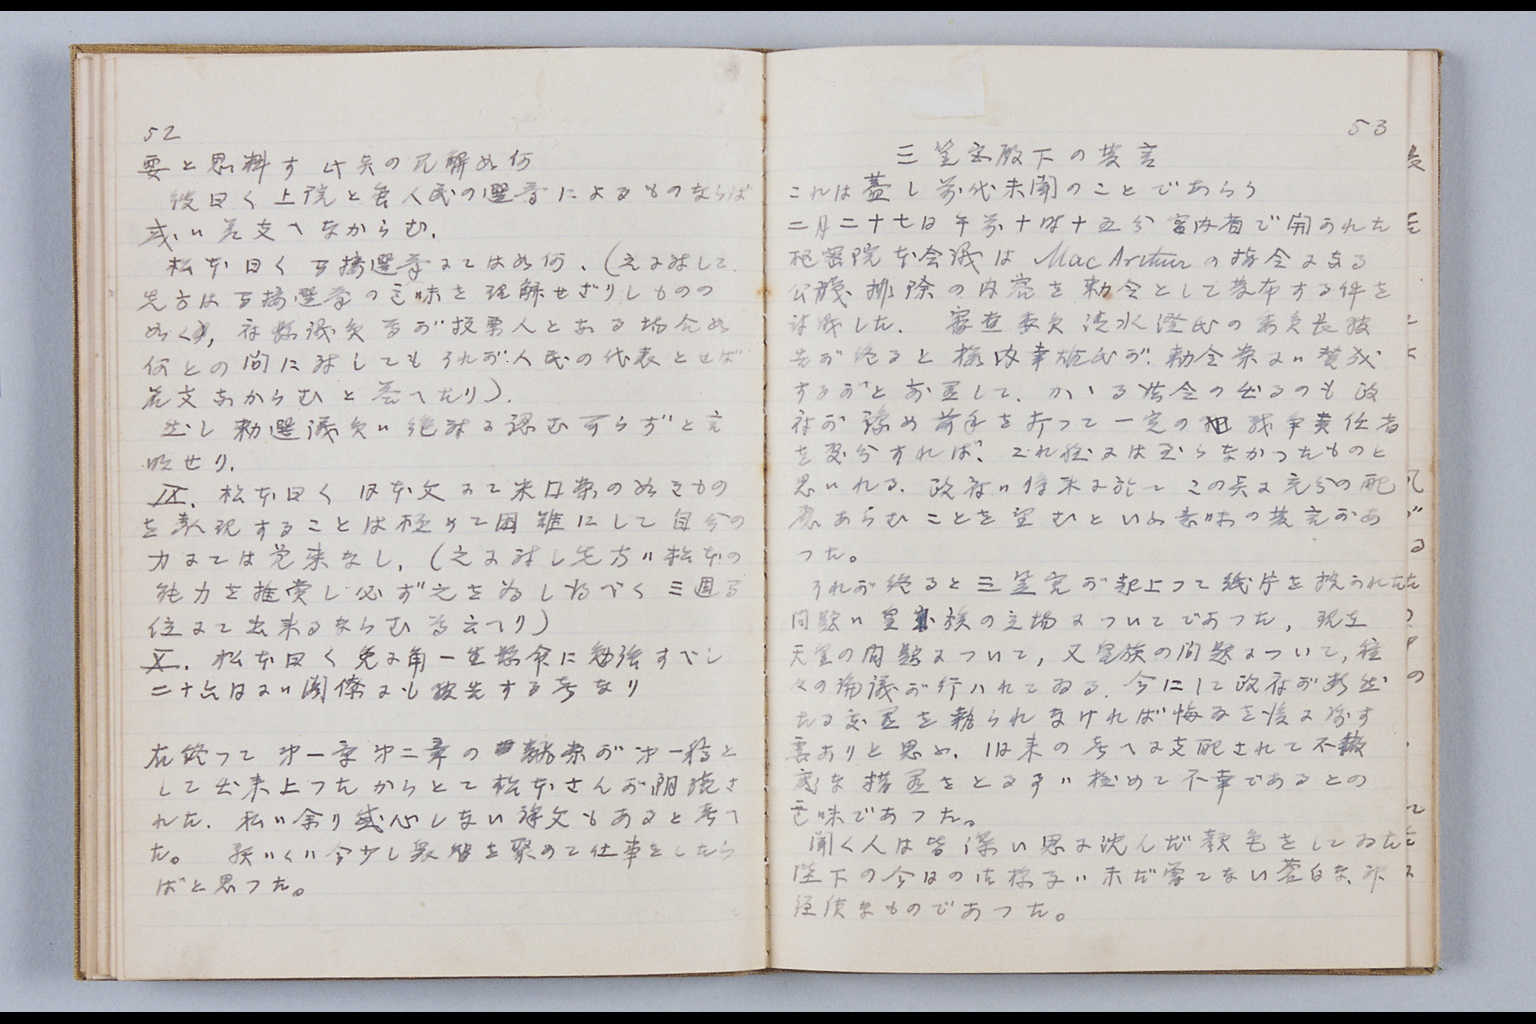 52
要と思料す 此矣の見解如何
彼曰く 上院と雖人民の選挙によるものならば
或ハ差支へなからむ.
松本曰く 互接選挙にては如何.(之に対して
先方は互接選挙の意味を理解せざりしものの
如く, 社務議員 等が投票人となる場合如
何との問に対しても それが人民の代表とせば
差支なからむと答へたり).
然し勅選議員ハ絶対に認む可らずと言
明せり.
IX. 松本曰く 日本文にて米国案の如きもの
を表現することは極めて困難にして自分の
力にては覚束なし.(之に対し先方ハ松本の
能力を推賞し必ず之を為し得べく 三週る
位にて出来るならむ等云へり)
X. 松本曰く 兎に角一生懸命に勉強すべし
二十六日にハ閣僚にも披先する考なり
右終つて 第一章第二章の翻案が第一稿と
して出来上つたからとて松本さんが朗読さ
れた. 私ハ余り感心しない譯文もあると考へ
た。 願ハくハ今少し衆智を聚めて仕事をしたら
ばと思つた。
53
三笠宮殿下の発言
これは蓋し前代未聞のことであらう
二月二十七日午前十時十五分宮内省で開かれた
枢密院本会議は MacArthur の指令による
公職排除の内容を勅令として発布する件を
討議した. 審査委員 清水澄氏の委員長報
告が終ると 樞内幸雄氏が. 勅令案にハ賛成
するがとお置して. かゝる法令の出るのも政
府が豫め前手を打つて一定の 戦争責任者
を処分すれば, これ程には至らなかつたものと
思いれる. 政府ハ将来に於てこの点に充分の配
慮あらむことを望むといふ意味の発言があ
つた。
それが終ると三笠宮が起上つて紙片を披かれた
問題ハ皇族の立場についてであつた, 現在
天皇の問題について, 又皇族の問題について, 種
々の論議が行ハれてゐる. 今にして政府が断然
たる処置を執られなければ悔ゐを後に残す
虞ありと思ふ. 旧来の考へに支配されて不徹
底な措置をとる事ハ極めて不幸であるとの
意味であつた。
聞く人は皆深い思に沈んだ顔色をしてゐた
陛下の今日の御様子ハ未だ嘗てない蒼白な, 神
経質なものであつた。